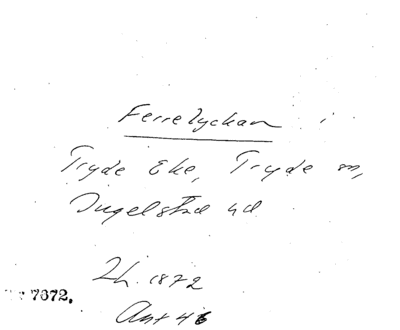 Ferrelyckan
Tryde Eke, Tryde sn,
Ingelstad hd
Lh. 1872
7672.
Ant 46